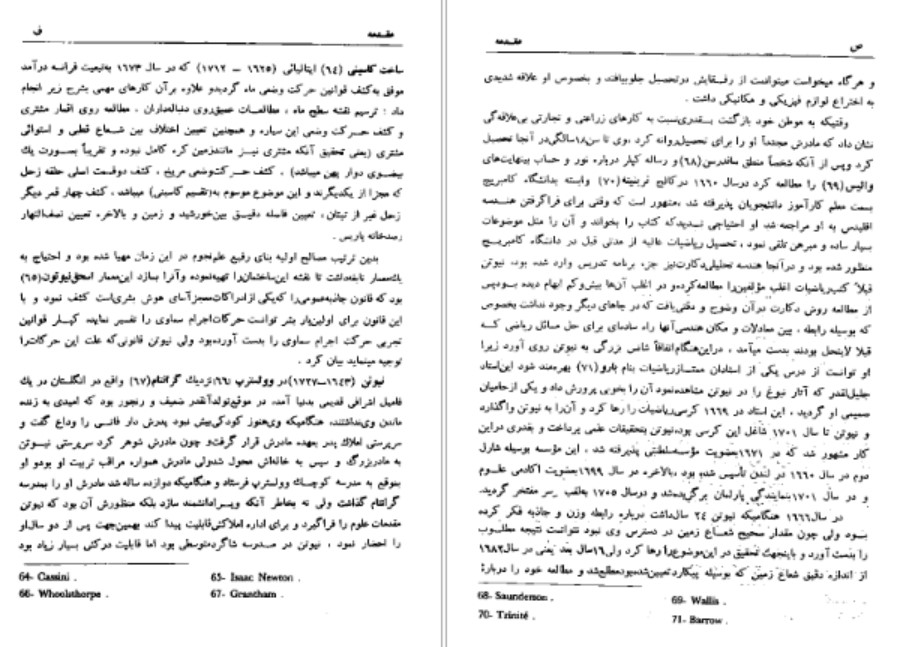 مقدمه ف
ساخت کاسینی (٦٤) ایتالیائی (١٦٢٥ – ١٧١٢) که در سال ١٦٧٣ به‌تبعیت فرانسه درآمد
موفق به‌کشف قوانین حرکت وضعی ماه گردیدو علاوه برآن کارهای مهمی بشرح زیر انجام
داد : ترسیم نقشه سطح ماه ، مطالعات عمیق‌روی دنباله‌داران . مطالعه روی اقمار مشتری
و کشف حرکت وضعی این سیاره و همچنین تعیین اختلاف بین شعاع قطبی و استوائی
مشتری (یعنی تحقیق آنکه مشتری نیز مانندزمین کره کامل نبوده و تقریباً بصورت یک
بیضوی دوار پهن میباشد) . کشف حرکت‌وضعی مریخ ، کشف دوقسمت اصلی حلقه زحل
که مجزا از یکدیگرند و این موضوع موسوم به(تقسیم کاسینی) میباشد . کشف چهار قمر دیگر
زحل غیر از تیتان، تعیین فاصله دقیق بین‌خورشید و زمین و بالاخره تعیین نصف‌النهار
رصدخانه پاریس .
بدین ترتیب مصالح اولیه بنای رفیع علم‌نجوم در این زمان مهیا شده بود و احتیاج به
یک‌معمار نابغه‌داشت تا نقشه این‌ساختمان‌را تهیه‌نموده وآنرا بسازد این‌معمار اسحق‌نیوتون(٦٥)
بود که قانون جاذبه‌عمومی‌را که‌یکی ازادراکات‌معجزآسای هوش بشری‌است کشف نمود و با
این قانون برای اولین‌بار بشر توانست حرکات‌اجرام سماوی را تفسیر نماید، کپلر قوانین
تجربی حرکت اجرام سماوی را بدست آورده‌بود ولی نیوتن قانونی‌که علت این حرکات‌را
توجیه مینماید بیان کرد .
نیوتن (١٦٤٣–١٧٢٧)در وولسترپ ٦٦نزدیک گرانتام(٦٧) واقع در انگلستان در یک
فامیل اشرافی قدیمی بدنیا آمد، در موقع‌تولدآنقدر ضعیف و رنجور بود که امیدی به زنده
ماندن وی‌نداشتند، هنگامیکه وی‌هنوز کودکی‌بیش نبود پدرش دار فانی را وداع گفت و
سرپرستی املاک پدر بعهده مادرش قرار گرفت‌و چون مادرش شوهر کرد سرپرستی نیوتن
به مادربزرگ و سپس به خاله‌اش محول شدولی مادرش همواره مراقب تربیت او بودو او
بموقع به مدرسه کوچک وولسترپ فرستاد و هنگامیکه دوازده ساله شد مادرش او را بمدرسه
گرانتام گذاشت ولی نه بخاطر آنکه ویرادانشمند سازد بلکه منظورش آن بود که نیوتن
مقدمات علوم را فراگیرد و برای اداره املاکش‌قابلیت پیدا کند بهمین‌جهت پس از دو سال‌او
را احضار نمود ، نیوتن در مدرسه شاگردمتوسطی بود اما قابلیت درکش بسیار زیاد بود
64- Cassini .
65- Isaac Newton .
66- Whoolsthorpe .
67- Grantham .
مقدمه ص
و هرگاه میخواست میتوانست از رفقایش درتحصیل جلوبیافتد ، بخصوص او علاقه شدیدی
به اختراع لوازم فیزیکی و مکانیکی داشت .
وقتیکه به موطن خود بازگشت بقدری‌نسبت به کارهای زراعتی و تجارتی بی‌علاقه‌گی
نشان داد که مادرش مجدداً او را برای تحصیل‌روانه کرد ،وی تا سن١٨سالگی‌در آنجا تحصیل
کرد وپس از آنکه شخصاً منطق ساندرسن(٦٨)و رساله کپلر درباره نور و حساب بینهایت‌های
والیس(٦٩) را مطالعه کرد درسال ١٦٦٠ درکالج ترینیته(٧٠) وابسته بدانشگاه کامبریج
بسمت معلم کارآموز دانشجویان پذیرفته شد ،مشهور است که وقتی برای فراگرفتن هندسه
اقلیدس به او مراجعه شد او احتیاجی ندیدکه کتاب را بخواند و آن را مثل موضوعات
بسیار ساده و مبرهن تلقی نمود ، تحصیل ریاضیات عالیه از مدتی قبل در دانشگاه کامبریج
منظور شده بود و درآنجا هندسه تحلیلی‌دکارت‌نیز جزء برنامه تدریس وارد شده بود، نیوتن
قبلا کتب‌ریاضیات اغلب مؤلفین‌را مطالعه‌کرده‌و در اغلب آن‌ها بیش‌وکم ابهام دیده بودپس
از مطالعه روش دکارت درآن وضوح و دقتی‌یافت که در جاهای دیگر وجود نداشت بخصوص
که بوسیله رابطه ، بین معادلات و مکان هندسی‌آنها راه ساده‌ای برای حل مسائل ریاضی که
قبلا لاینحل بودند بدست میآمد ، دراین‌هنگام‌اتفاقاً شانس بزرگی به نیوتن روی آورد زیرا
او توانست از درس یکی از استادان ممتازریاضیات بنام بارو(٧١) بهره‌مند شود این‌استاد
جلیل‌القدر که آثار نبوغ را در نیوتن مشاهده‌نمود آن را بخوبی پرورش داد و یکی ازحامیان
صمیمی او گردید . این استاد در ١٦٦٩ کرسی‌ریاضیات را رها کرد و آن‌را به نیوتن واگذارد
و نیوتن تا سال ١٧٠١ شاغل این کرسی بود،نیوتن بتحقیقات علمی پرداخت و بقدری دراین
کار مشهور شد که در ١٦٧١بعضویت مؤسسه‌سلطنتی پذیرفته شد . این مؤسسه بوسیله شارل
دوم در سال ١٦٦٠ در لندن تأسیس شده بود ،بالاخره در سال ١٦٩٩بعضویت آکادمی علوم
و در سال ١٧٠١بنمایندگی پارلمان برگزیده‌شد و درسال ١٧٠٥ به‌لقب سر مفتخر گردید.
در سال١٦٦٦ هنگامیکه نیوتن ٢٤ سال‌داشت درباره رابطه وزن و جاذبه فکر کرده
بود ولی چون مقدار صحیح شعاع زمین در دسترس وی نبود نتوانست نتیجه مطلوب
را بدست آورد و باینجهت تحقیق در این‌موضوع‌را رها کرد ولی١٦سال بعد یعنی در سال١٦٨٢
از اندازه دقیق شعاع زمین که بوسیله پیکاردتعیین‌شده‌بودمطلع‌شد و مطالعه خود را دربارهٔ
68- Saunderson .
69- Wallis .
70- Trinité .
71- Barrow .